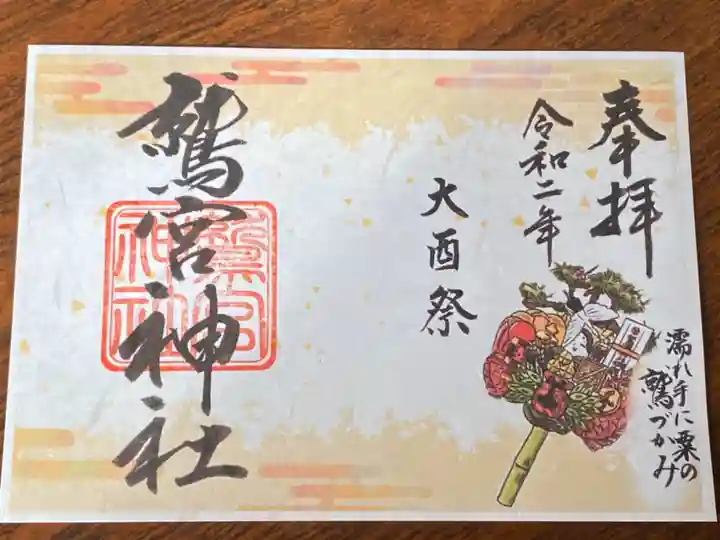 奉拝
令和二年
濡れ手に粟の
鷲づかみ
大酉祭
鷲宮神社
鷲宮
神社